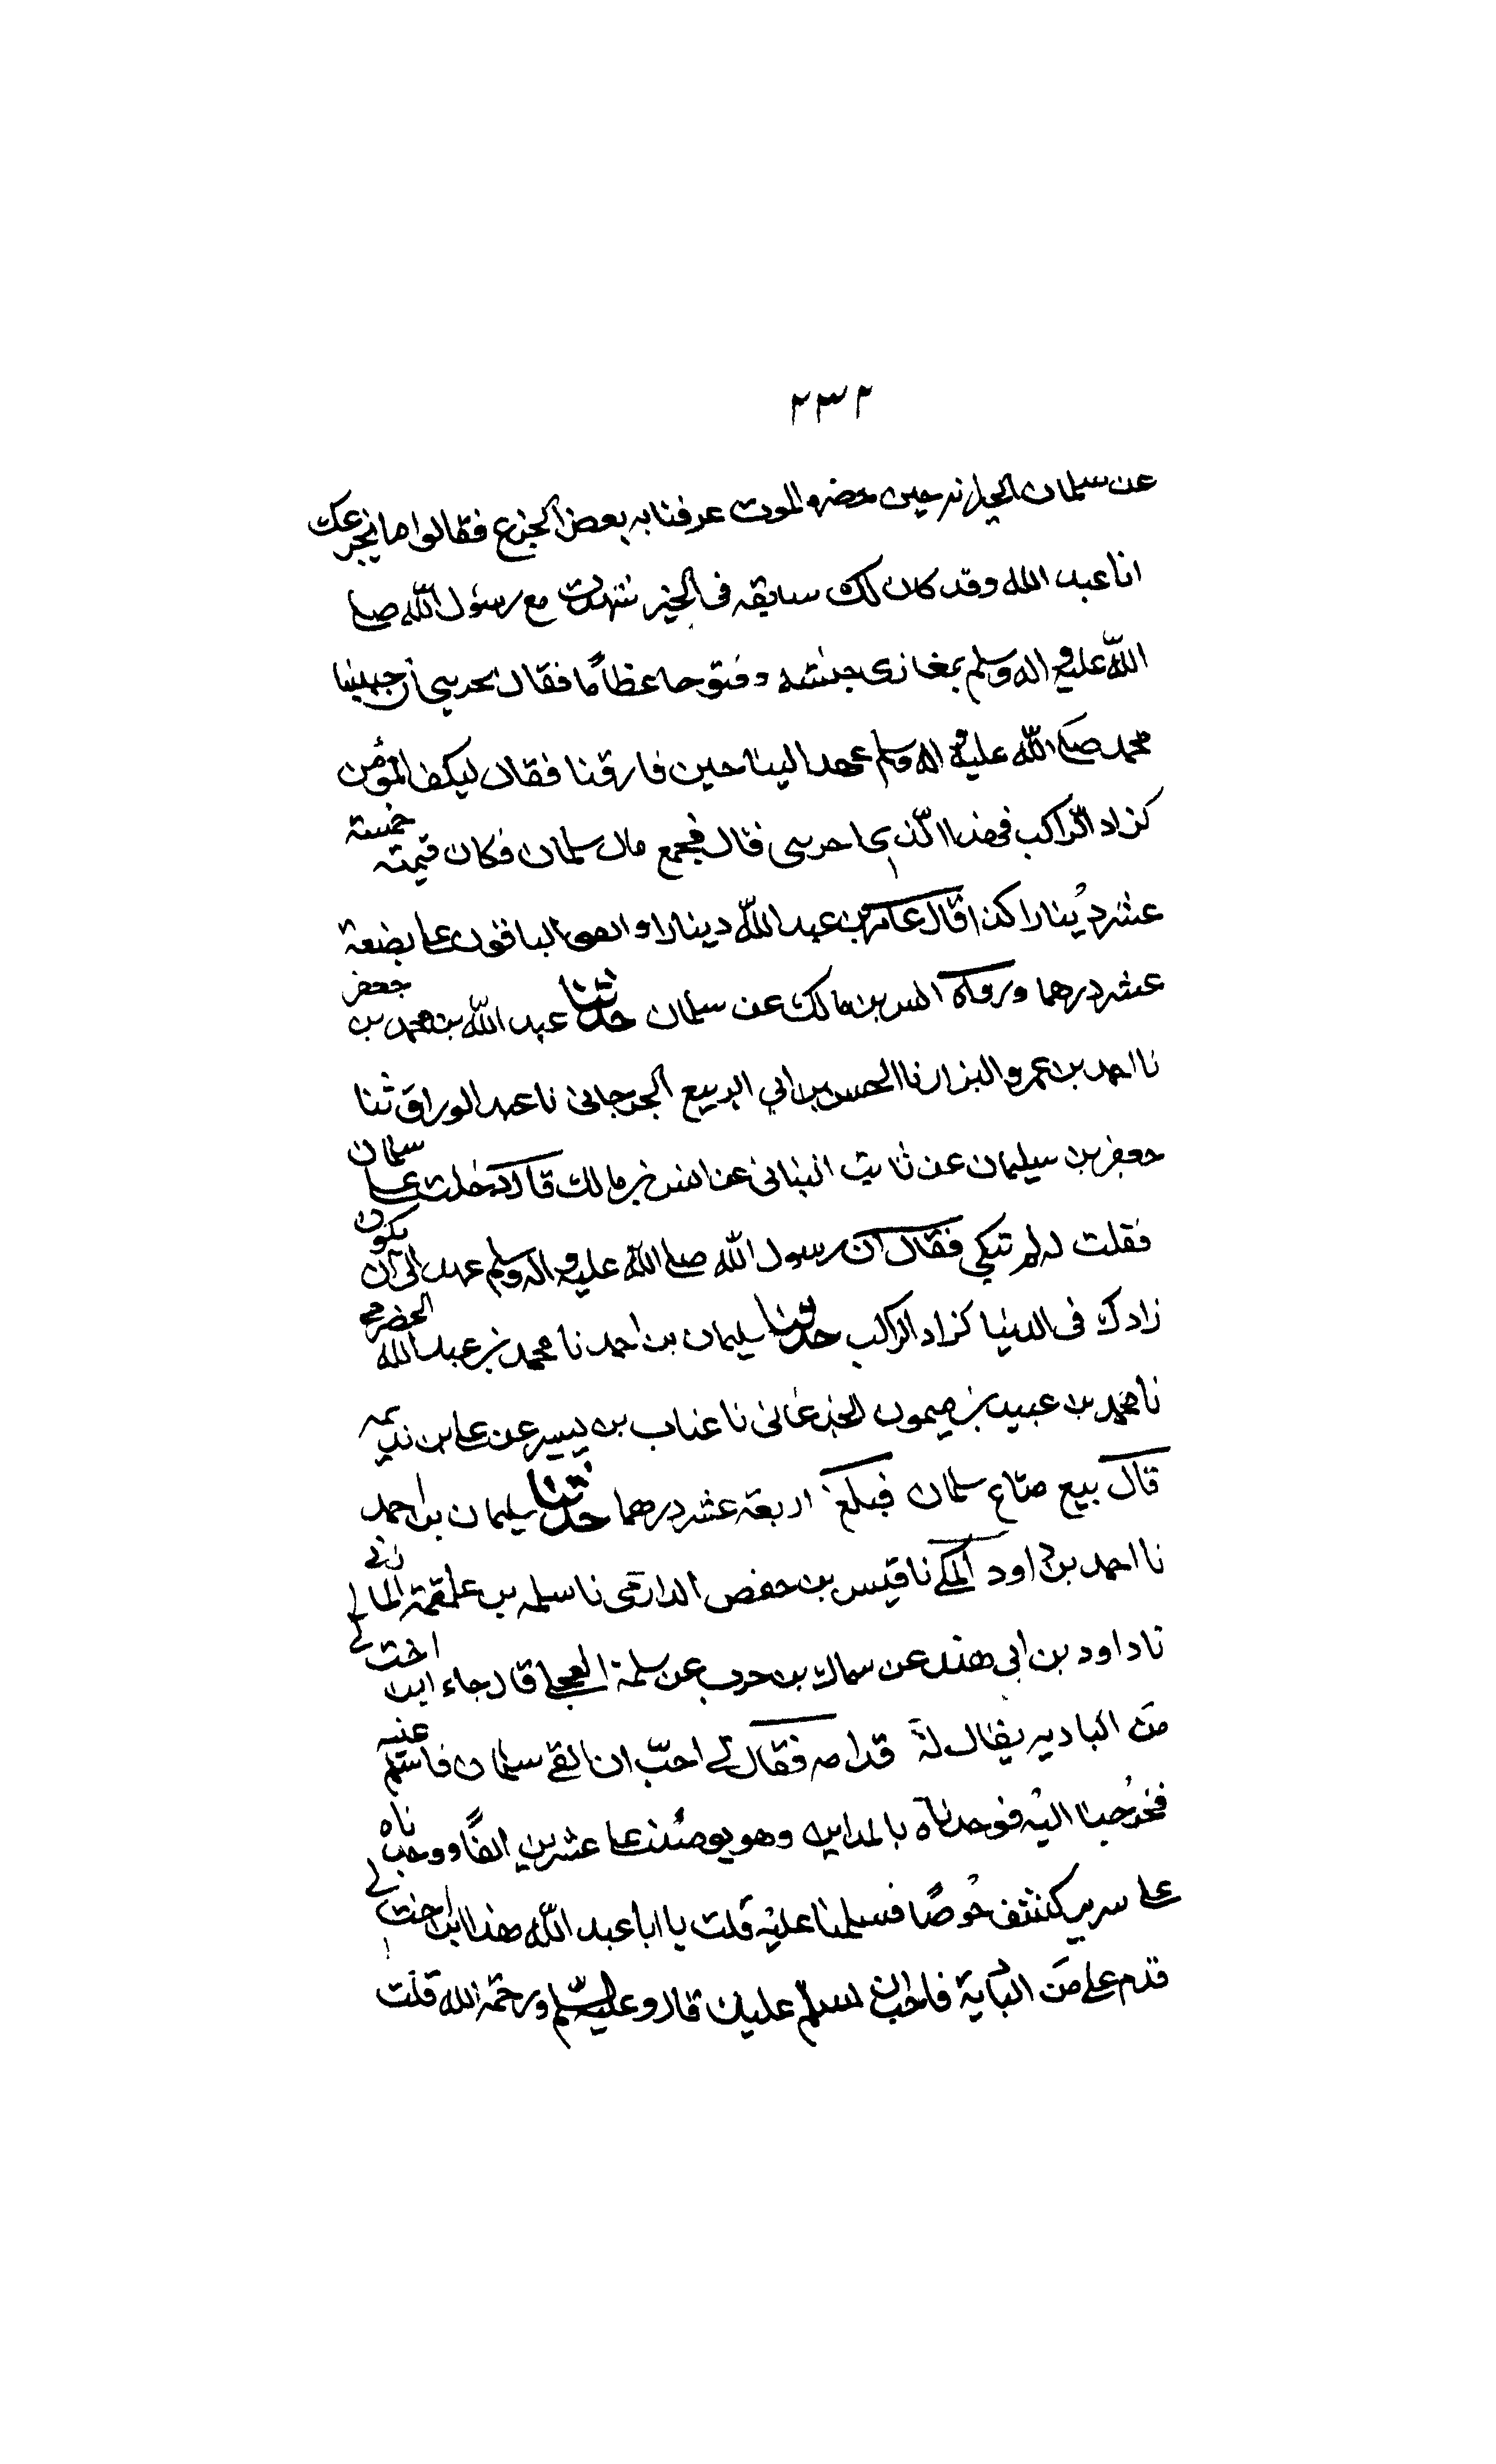 ٢٣٢
عن سلمان الخير انه حين حضره الموت عرفنا به بعض الجزع فقالوا ما يجزعك
ابا عبد الله وقد كان لك سابقه فى الخير شهدت مع رسول الله صلى
الله عليه واله وسلم مغازى حسنه وفتوحا عظاما فقال يحزنني ان حبيبنا
محمد صلى الله عليه واله وسلم عهد الينا حين فارقنا فقال ليكف المؤمن
كزاد الراكب فهذا الذى احزننى قال فجمع مال سلمان فكان قيمته خمسة
عشر دينارا كذا قال عامر بن عبد الله دينارا واتفق الباقون على بضعة
عشر درهما ورواه انس بن مالك عن سلمان حدثنا عبد الله بن محمد بن جعفر
نا احمد بن عمرو البزار نا الحسن بن ابي الربيع الجرجانى نا عبد الوراق ثنا
جعفر بن سليمان عن ثابت البنانى عن انس بن مالك قال دخلت على سلمان
فقلت له لم تبكي فقال ان رسول الله صلى الله عليه واله وسلم عهد الى ان يكون
زادك فى الدنيا كزاد الراكب حدثنا سليمان بن احمد نا محمد بن عبد الله الحضرمى
نا محمد بن عبيد بن ميمون الجدعانى نا عتاب بن بشير عن على بن بذيمه
قال بيع متاع سلمان فبلغ اربعة عشر درهما حدثنا سليمان بن احمد
نا احمد بن داود المكى نا قيس بن حفص الدارمى نا مسلمه بن علقمة المازنى
نا داود بن ابى هند عن سماك بن حرب عن سلمة العجلى قال جاء ابن اخت لى
من الباديه يقال له قدامه فقال لى احب ان القى سلمان فاسلم عليه
فخرجنا اليه فوجدناه بالمداين وهو يومئذ على عشرين الفا ووجدناه
على سرير ينتف خوصا فسلمنا عليه قلت يا ابا عبد الله هذا ابن اخت لى
قدم على من البادية فاحب ان يسلم عليك قال وعليه السلام ورحمة الله قلت